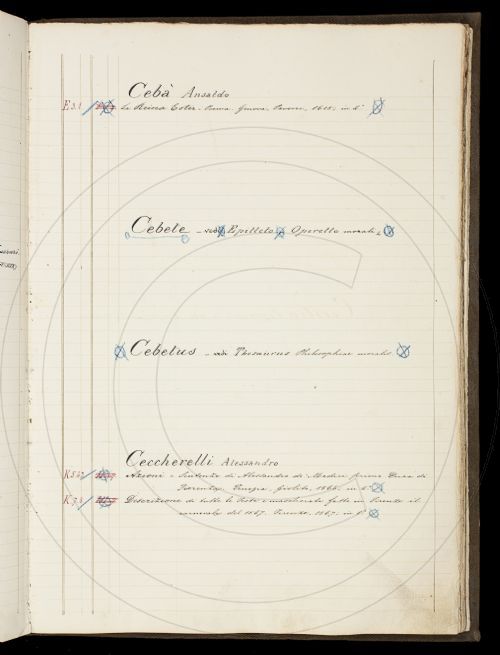 Cebà Ansaldo
E 3.1 La Reina Ester. Poema. Genova, Pavoni, 1615; in 4°
Cebete - vedi Epitteto Operetta morale
Cebetus - vedi Thesaurus Philosophiae moralis
Ceccherelli Alessandro
Azioni e Sentenze di Alessandro de Medici primo Duca di
Fiorenza. Venezia, Giolito, 1565; in 8°
Descrizione di tutte le Feste e mascherate fatte in Firenze il
carnevale del 1567. Firenze, 1567; in 8°